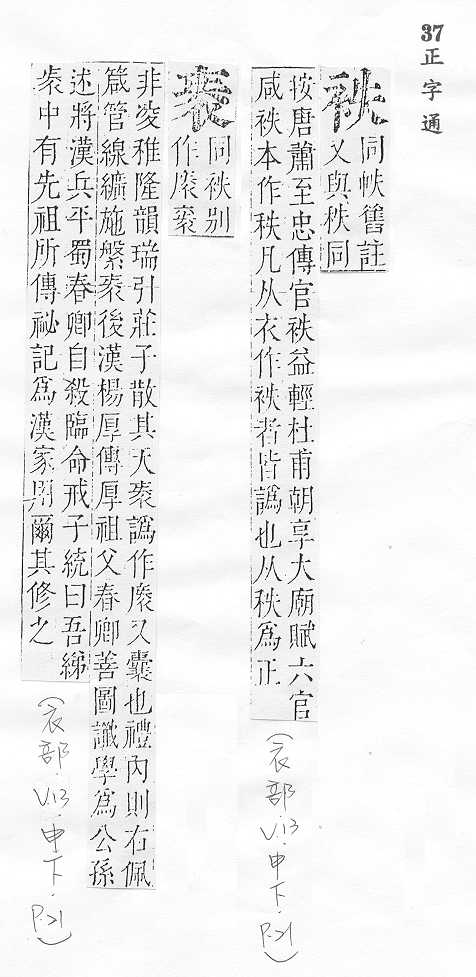 37 正字通
袟
同帙舊註
又與秩同
按唐蕭至忠傳官袟益輕杜甫朝享大廟賦六官
咸袟本作秩凡从衣作袟者皆譌也从秩爲正
(衣部.V.13.申下.P.21)
袠
同袟别
作㡼袠
非凌稚隆韻瑞引莊子散其天袠譌作㡼又囊也禮內則右佩
箴管線纊施縏袠後漢楊厚傳厚祖父春卿善圖讖學爲公孫
述將漢兵平蜀春卿自殺臨命戒子統曰吾綈
袠中有先祖所傳祕記爲漢家用爾其修之
(衣部.V.13.申下.P.21)